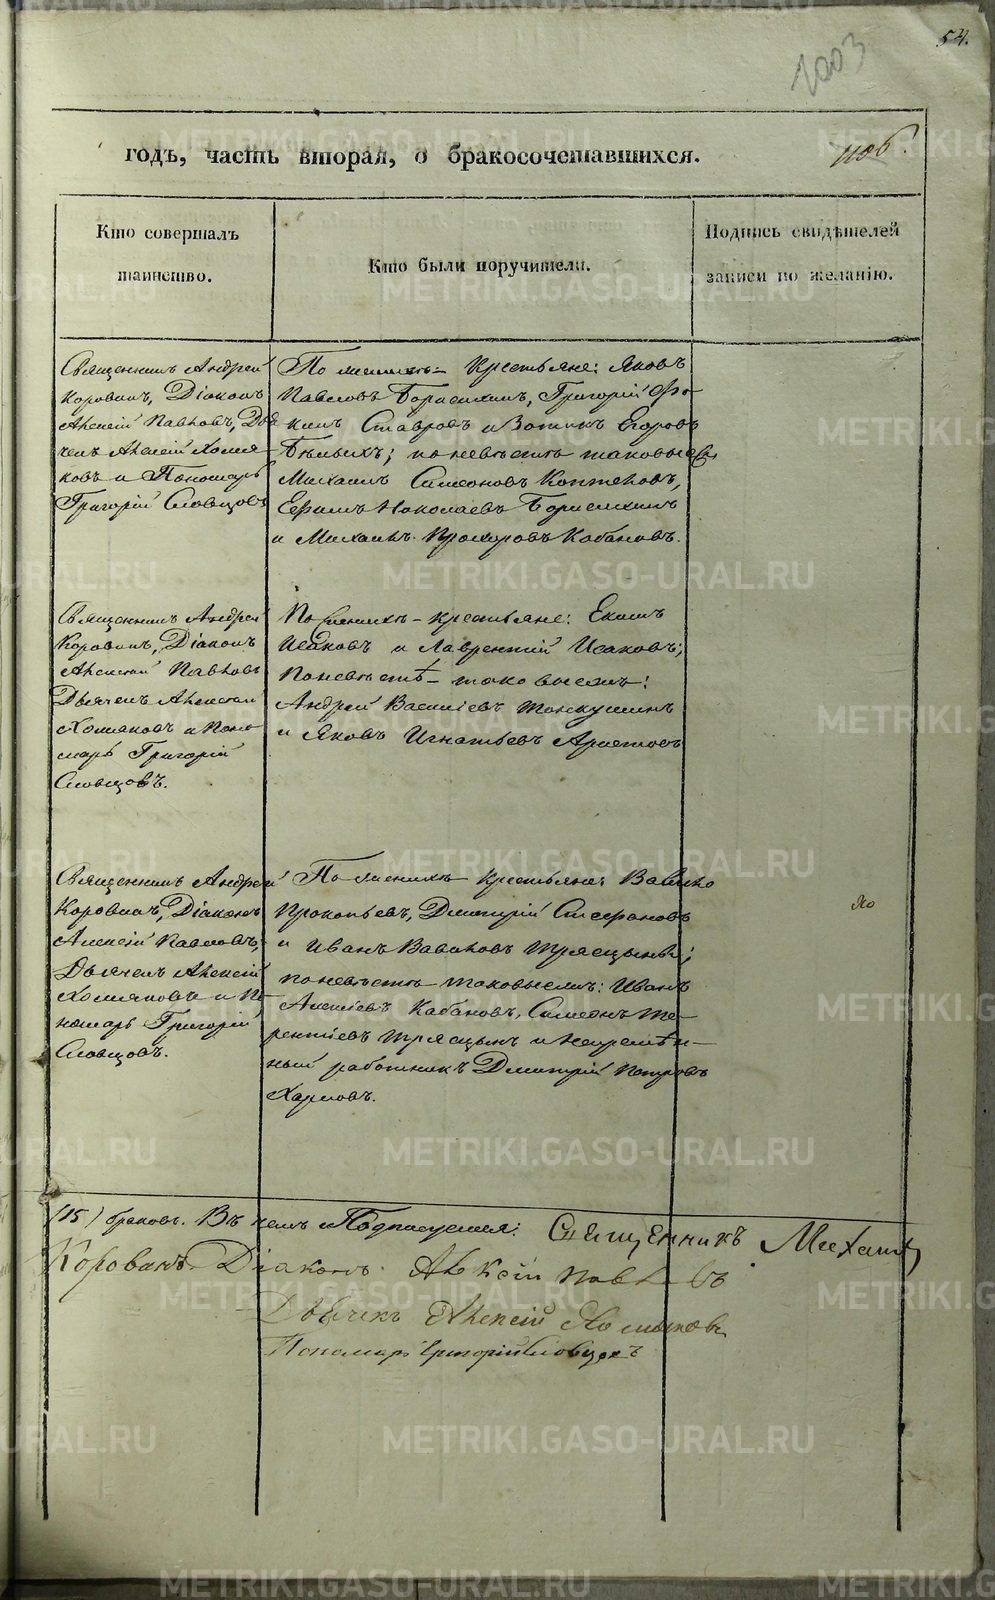 54.
1003
годъ, часть вторая, о бракосочетавшихся.
1106.
Кто совершалъ
таинство.
Кто были поручители.
Подпись свидѣтелей
записи по желанію.
Священникъ Андрей
Корованъ, Діаконъ
Алексій Павловъ, Дья
чекъ Алексій Хомя-
ковъ и Пономарь
Григорій Словцовъ
По женихѣ - крестьяне: Яковъ
Павловъ Борисихинъ, Григорій Фо-
кинъ Ставровъ и Зотикъ Егоровъ
Бѣлыхъ; по невѣстѣ таковые
Михаилъ Симеоновъ
Ефимъ Николаевъ Борисихинъ
и Михаилъ Прохоровъ Кабановъ.
Священникъ Андрей
Корованъ, Діаконъ
Алексій Павловъ
Дьячекъ Алексій
Хомяковъ и Поно
марь Григорій
Словцовъ.
По женихѣ - крестьяне: Екимъ
Исаковъ и Лаврентій Исаковъ;
По невѣстѣ - таковые жъ:
Андрей Василіевъ
и Яковъ Игнатьевъ Аристовъ
Священникъ Андрей
Корованъ, Діаконъ
Алексій Павловъ,
Дьячекъ Алексій
Хомяковъ и По-
номарь Григорій
Словцовъ.
По женихѣ крестьяне: Вавило
Прокопьевъ, Дмитрій Стефановъ
и Иванъ Вавиловъ Трясцыны;
по невѣстѣ таковые жъ: Иванъ
Алексіевъ Кабановъ, Симеонъ Те-
рентіевъ Трясцынъ и Непремѣн-
ный работникъ Дмитрій Петровъ
Харловъ.
(15) браковъ. Въ чемъ и Подписуемся: Священникъ Михаилъ
Корованъ Діаконъ Алексій Павловъ
Дьячекъ Алексій Хомяковъ
Пономарь Григорій Словцовъ
METRIKI.GASO-URAL.RU